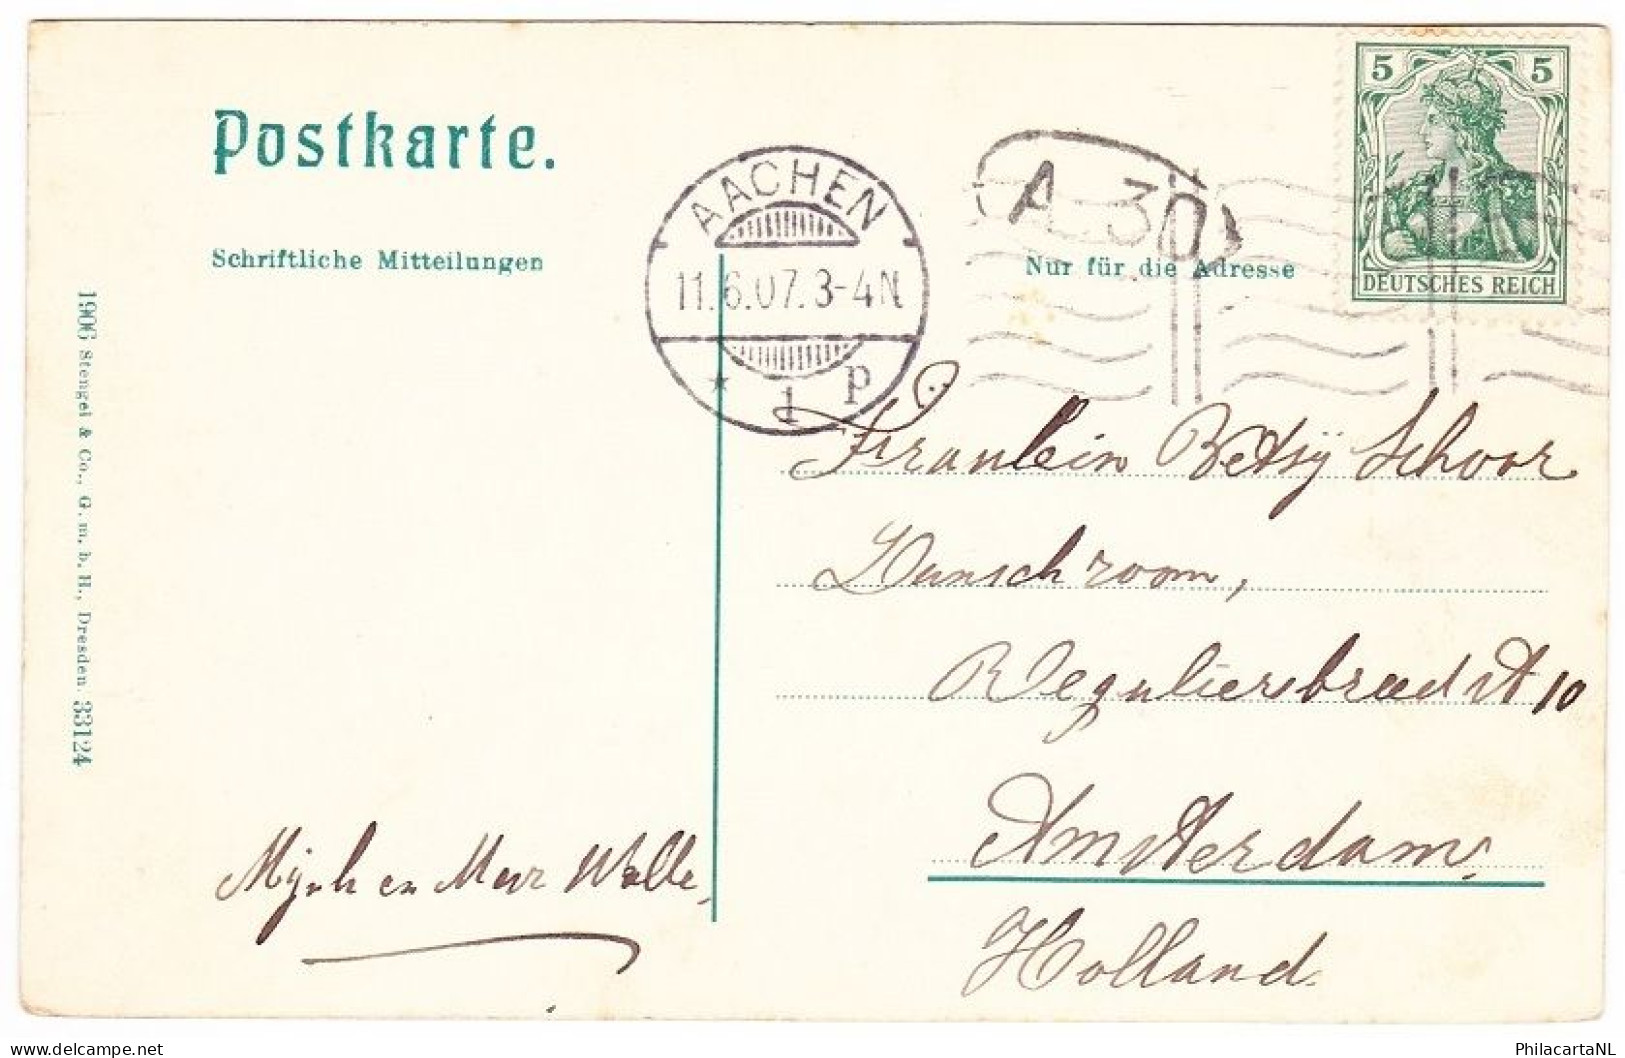 Postkarte.
Schriftliche Mitteilungen
Nur für die Adresse
AACHEN
11.6.07.3-4N
* 1 p
A 30
5 5
DEUTSCHES REICH
1906 Stengel & Co., G. m. b. H., Dresden. 33124
Fraulein Betsÿ Schoor
room,
Reguliersbreedst 10
Amsterdam,
Holland.
en Mevr
PhilacartaNL